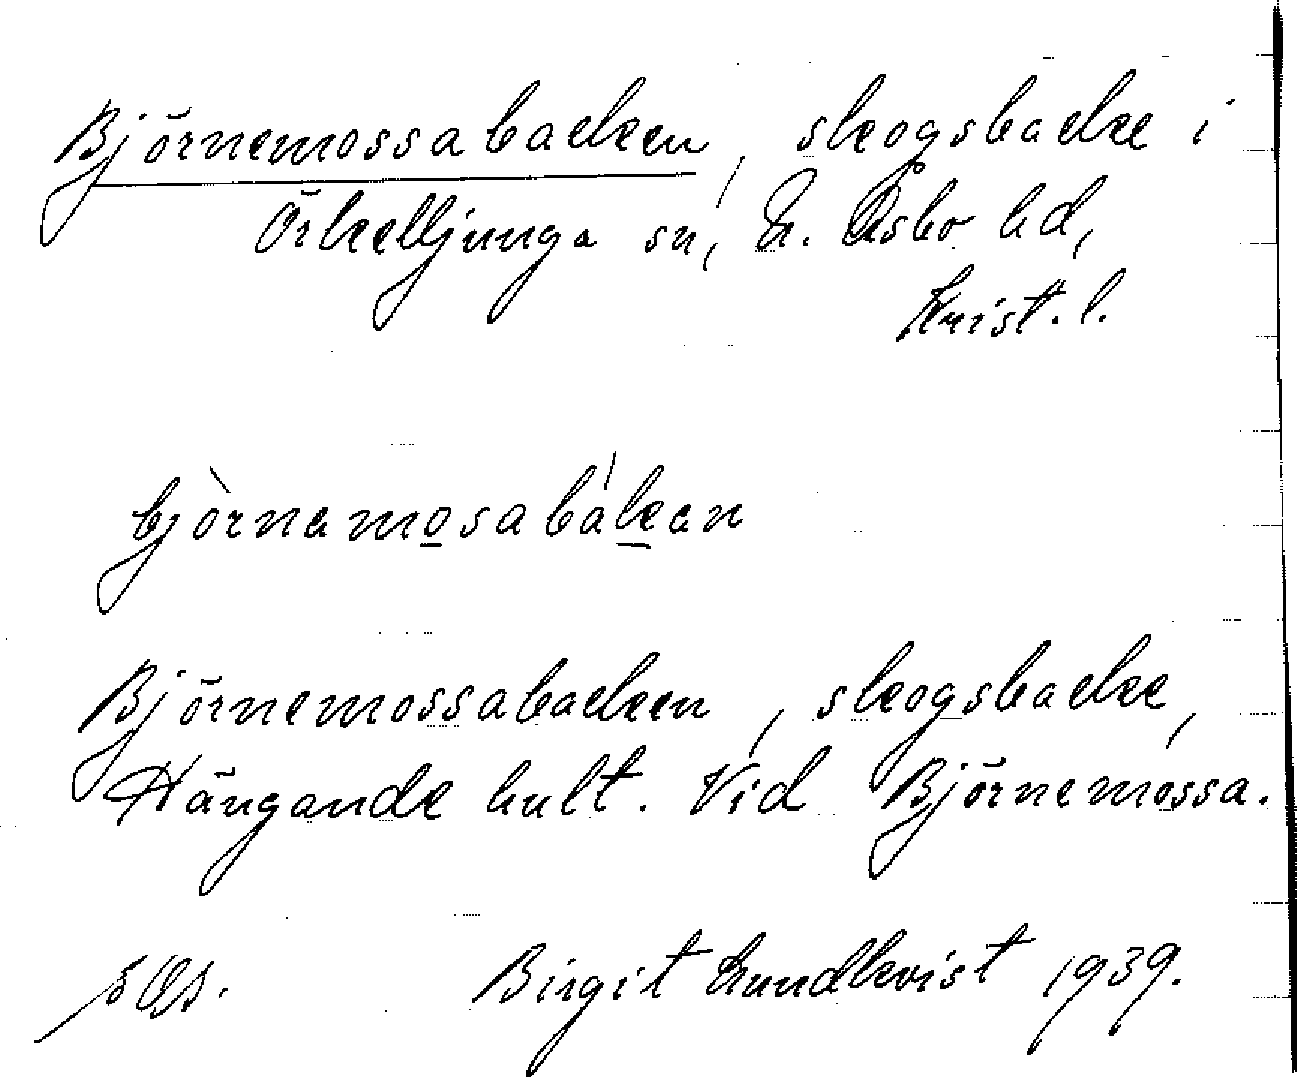 Björnemossabacken, skogsbacke i
Örkelljunga sn, N. Åsbo hd,
Krist. l.
bjòrnamosabákan
Björnemossabacken, skogsbacke,
Hängande hult. Vid Björnemossa.
Birgit Lundkvist 1939.